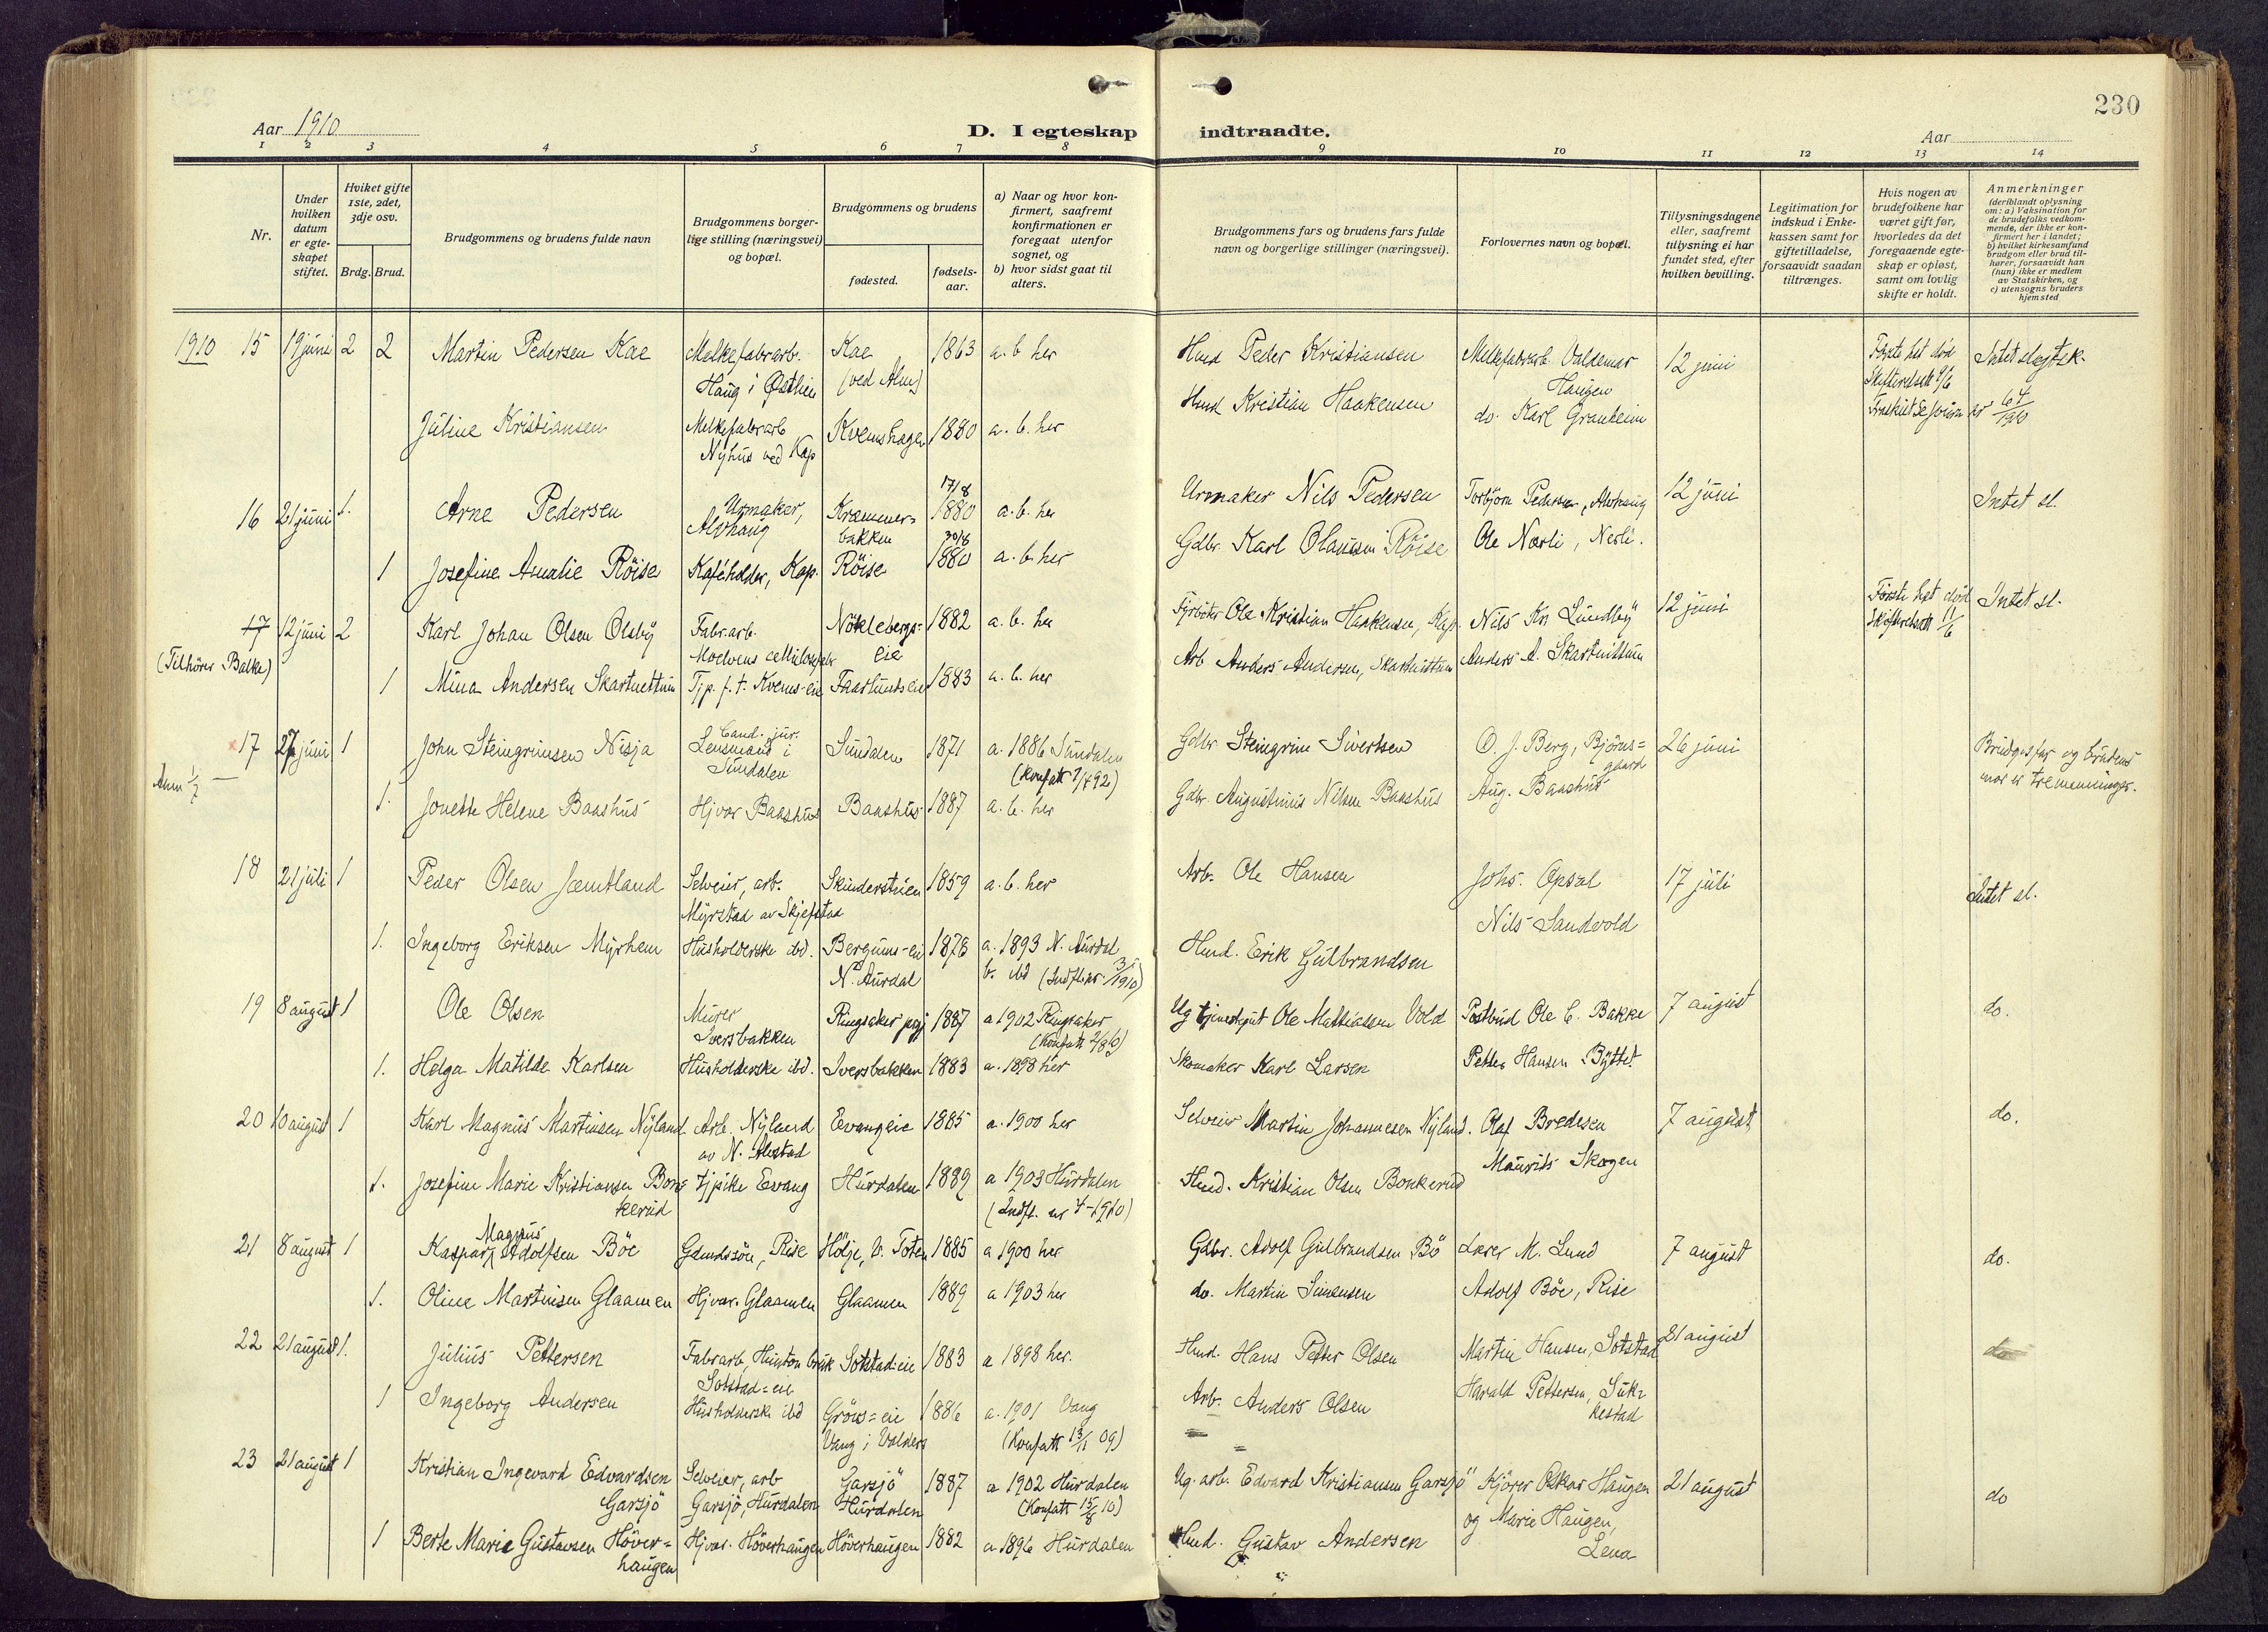 230
Aar 1910
D. I egteskap indtraadte.
Aar
1 2 3 4 5 6 7 8 9 10 11 12 13 14
Nr.
Under hvilken datum er egteskapet stiftet.
Hviket gifte 1ste, 2det, 3dje osv.
Brdg. Brud.
Brudgommens og brudens fulde navn
Brudgommens borgerlige stilling (næringsvei) og bopæl.
Brudgommens og brudens
fødested.
fødselsaar.
a) Naar og hvor konfirmert, saafremt konfirmationen er foregaat utenfor sognet, og
b) hvor sidst gaat til alters.
Brudgommens fars og brudens fars fulde navn og borgerlige stillinger (næringsvei).
Forlovernes navn og bopæl.
Tillysningsdagene eller, saafremt tillysning ei har fundet sted, efter hvilken bevilling.
Legitimation for indskud i Enkekassen samt for giftetilladelse, forsaavidt saadan tiltrænges.
Hvis nogen av brudefolkene har været gift før, hvorledes da det foregaaende egteskap er opløst, samt om lovlig skifte er holdt.
Anmerkninger (deriblandt oplysning om: a) Vaksination for de brudefolks vedkommende, der ikke er konfirmert her i landet; b) hvilket kirkesamfund brudgom eller brud tilhører, forsaavidt han (hun) ikke er medlem av Statskirken, og c) utensogns bruders hjemsted
1910 15 19 juni 2 2 Martin Pedersen Kae Melkefabrarb. Kae 1863 a. b. her Husd Peder Kristiansen Melkefabrarb. Valdemar 12 juni Første het død Intet slegtsk.
Haug i Østlien (ved Alm) Haugen Skifteretsatt 9/6
Husd Kristian Haakensen do. Karl Granheim 64/1910
Juline Kristiansen Melkefabrarb Kvemshagen 1880 a. b. her
Nyhus ved Kap
16 21 juni 1. Arne Pedersen Urmaker, Kræmmer= 17/8 1880 a. b. her Urmaker Nils Pedersen Torbjørn Pedersen, Alvhaug 12 juni Intet sl.
Alvhaug bakken
1 Josefine Amalie Röise Kaféholder, Kap. Röise 30/8 1880 a. b. her Gdbr. Karl Olausen Röise Ole Nærli, Nerli.
17 12 juni 2 Karl Johan Olsen Olsby Fabr.arb. Nöklebergs= 1882 a. b. her Fyrböter Ole Kristian Haakensen, Kap. Nils Kr. Lundby 12 juni Første het död Intet sl.
(Tilhörer Balke) Moelvens cellulosefabr eie Skifteretsatt 11/6
1 Mina Andersen Skartnettum Tjp. f. t. Kvems-eie Faarlundseie 1883 a. b. her Arb. Anders Andersen, Skartnittum Anders A. Skartnittum
17 27 juni 1 John Steingrimsen Nisja Cand. jur. Sundalen 1871 a. 1886 Sundalen Gdbr. Steingrim Sivertsen O. J. Berg, Björns= 26 juni Brudg.s far og brudens
Lensmand i (Konfatt 7/4 92) gaard mor er tremenninger.
Sundalen
Alm 1/7
1. Jonette Helene Baashus Hjvær Baashus Baashus 1887 a. b. her Gdbr. Augustinus Nilsen Baashus Aug. Baashus
18 21 juli 1 Peder Olsen Jæmtland Selveier, arb. Skinderstuen 1859 a. b. her Arb. Ole Hansen Johs. Opsal 17 juli Intet sl.
Myrstad av Skjefstad Nils Sandvold
1. Ingeborg Eriksen Myrhem Husholderske ibd. Bergums-eie 1878 a. 1893 N. Aurdal Husd. Erik Gulbrandsen
N. Aurdal b. ibd (Indfl. nr. 3/1910)
19 8 august 1 Ole Olsen Murer Ringsaker pgj 1887 a 1902 Ringsaker Ug tjenestgut Ole Mathiassen Vold Postbud Ole C. Bakke 7 august do.
Iversbakken
1. Helga Matilde Karlsen Husholderske ibd. Iversbakken 1883 a. 1898 her Skomaker Karl Larsen Petter Hansen Byttet
20 10 august 1 Karl Magnus Martinsen Nyland Arb. Nyland Evangeie 1885 a. 1900 her Selveier Martin Johannesen Nyland. Olaf Bredesen 7 august do.
av N. Alestad Mauritz Skogen
1. Josefine Marie Kristiansen Bon= tjpike Evang Hurdalen 1889 a 1903 Hurdalen Husd. Kristian Olsen Bonkerud
kerud (Indfl. nr 4-1910)
21 8 august 1 Kaspar Magnus Adolfsen Böe Gdmdssön, Rise Hölje, V. Toten 1885 a 1900 her Gdbr. Adolf Gulbrandsen Bö Lærer M. Lund 7 august do.
1. Oline Martinsen Glaamen Hjvær. Glaamen Glaamen 1889 a 1903 her do. Martin Simensen Adolf Böe, Rise
22 21 august 1. Julius Pettersen Fabrarb, Hunton bruk Sotstad-eie 1883 a 1898 her. Husd. Hans Petter Olsen Martin Hansen, Sotstad 21 august do
Sotstad=eie
1 Ingeborg Andersen Husholderske ibd Gröns=eie 1886 a. 1901 Vang Arb. Anders Olsen Harald Pettersen, Suk=
Vang i Valders (Konfatt 13/11 09) kestad
23 21 august 1 Kristian Ingevard Edvardsen Selveier, arb Garsjö 1887 a 1902 Hurdalen Ug. arb. Edvard Kristiansen Garsjö Kjörer Oskar Haugen 21 august do
Garsjö Garsjö, Hurdalen Hurdalen (Konfatt 15/8 10) og Marie Haugen,
1 Berte Marie Gustavsen Höver= Hjvær. Höverhaugen Höverhaugen 1882 a 1896 Hurdalen Husd. Gustav Andersen Lena
haugen